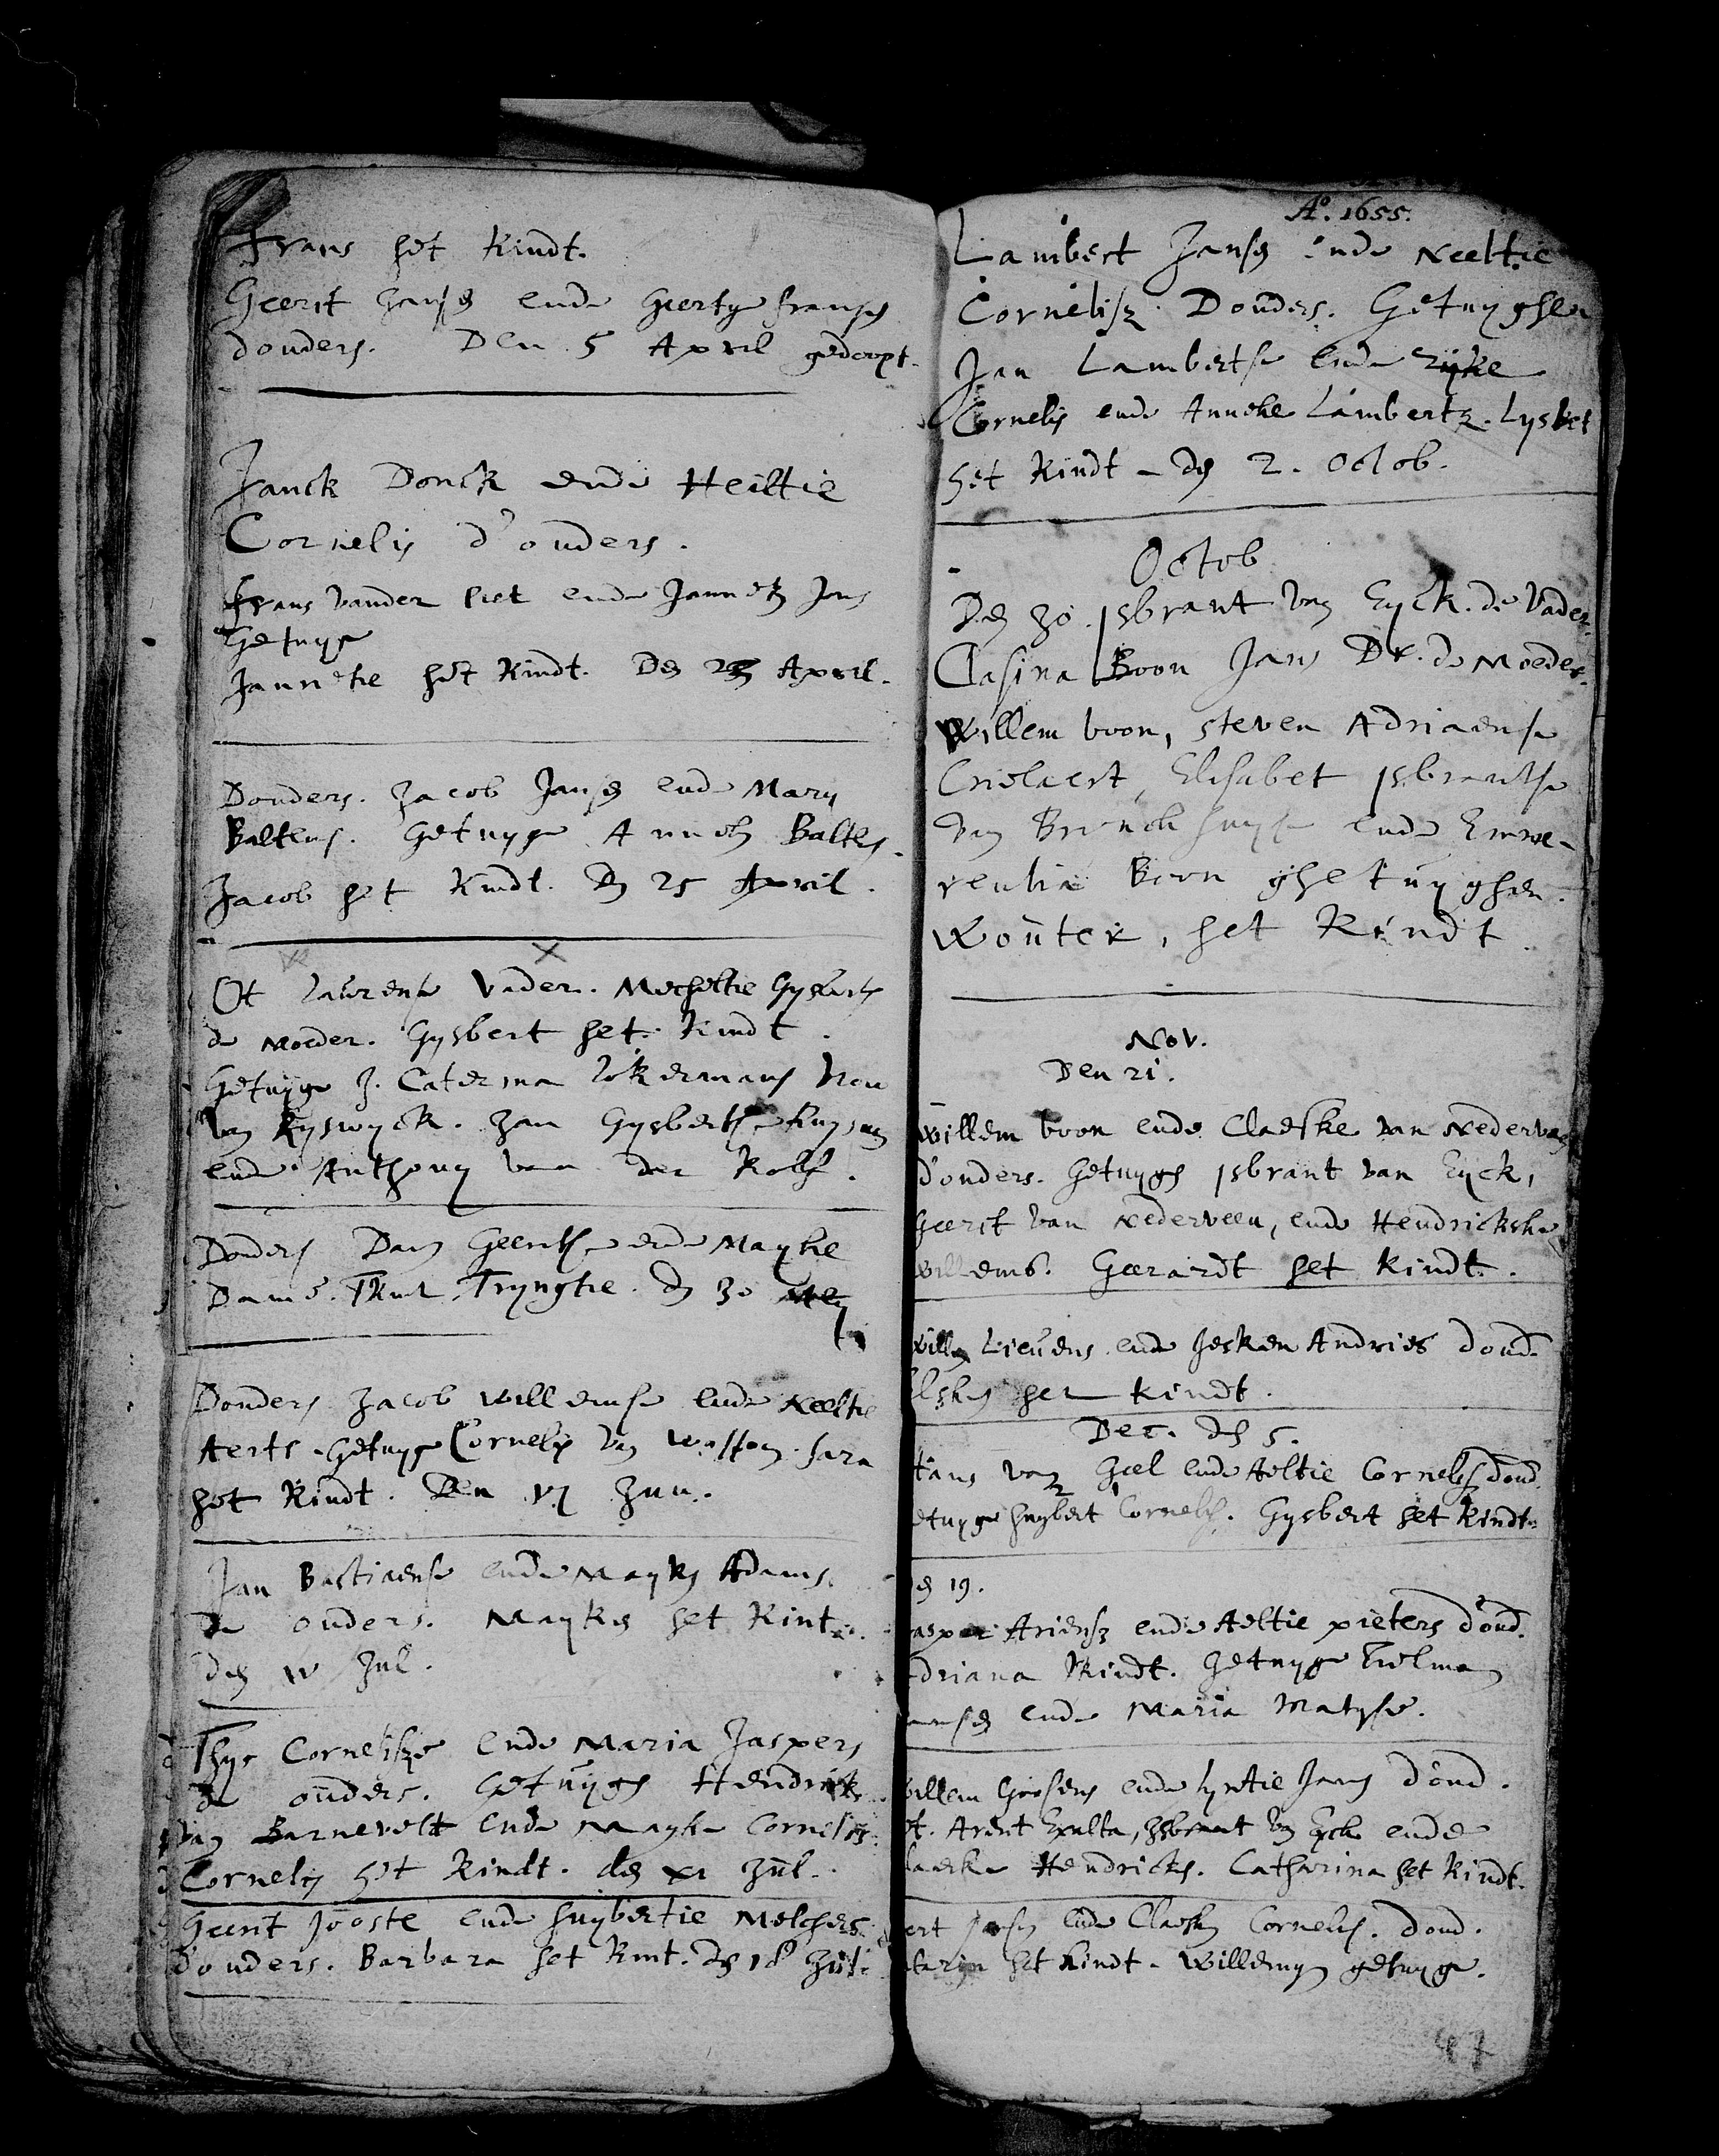 Frans het Kindt.
Geerit Jansz ende Geertge Fransz
douders. Den 5 April gedoopt.
Janck Donck ende Heiltie
Cornelis d'ouders.
Frans vander ende Jannetz Jans
Getuyge
Janneke het Kindt. Den April.
Douders. Jacob Jansz ende Mary
Baltens. Getuyge Anneke Baltes.
Jacob het Kindt. Den 25 April.
Ot Laurense Vader. Mecheltie Gysberts
de Moeder. Gysbert het Kindt.
Getuyge J. Caterina
van Ryswyck. Jan Gysbertse
ende Anthony van der Kolf.
Douders Dam Geeritse ende Mayke
Dams. Tkint Tryngtie. den 30 Mey
Douders Jacob Willemse ende Neeltie
Aerts. Getuyge Cornelis van Sara
het Kindt. Den Jun.
Jan Bastiaense ende Mayke Adams.
de ouders. Mayke het Kint.
den Jul.
Thys Cornelisze ende Maria Jaspers
de ouders. Getuyge Hendrick
van Barnevelt ende Mayke Cornelisz
Cornelis het Kindt. den XI Jul.
Geerit Jooste ende Huybertie Melchers
d'ouders. Barbara het Kint. den 18 Jul.
Ao. 1655.
Lambert Jansz ende Neeltie
Cornelisz Douders. Getuyghen
Jan Lambertse ende
Cornelis ende Anneke Lambertz. Lysbet
het Kindt - den 2. Octob.
Octob
Den 30. Isbrant van Eyck. de Vader.
Clasina Boon Jans Dr. de Moeder.
Willem boon, Steven Adriaense
Crielaert, Elisabet Isbrantse
van ende Emme-
rentia Boon ghetuyghen.
Wouter, het Kindt.
Nov.
Den 21.
Willem boon ende Claeske van Nederveen
d'ouders. Getuyge Isbrant van Eyck,
Geerit van Nederveen, ende Hendrickske
Willems. Gerardt het Kindt.
Willem Lievens ende Jesken Andries doud.
het Kindt.
Dec. den 5.
van Geel ende Aeltie Cornelisz doud.
etuyge Huybert Cornelisz. Gysbert het Kindt.
19.
asper Ariensz ende Aeltie pieters d'oud.
driana Kindt. Getuyge Tielman
ansz ende Maria Matyse.
illem Goosens ende Lyntie Jans d'oud.
Arent Isbrant van Eyck ende
Hendricks. Catharina het Kindt.
ert ende Claesken Cornelisz. doud.
taryn het Kindt. Willemyn getuyge.
47